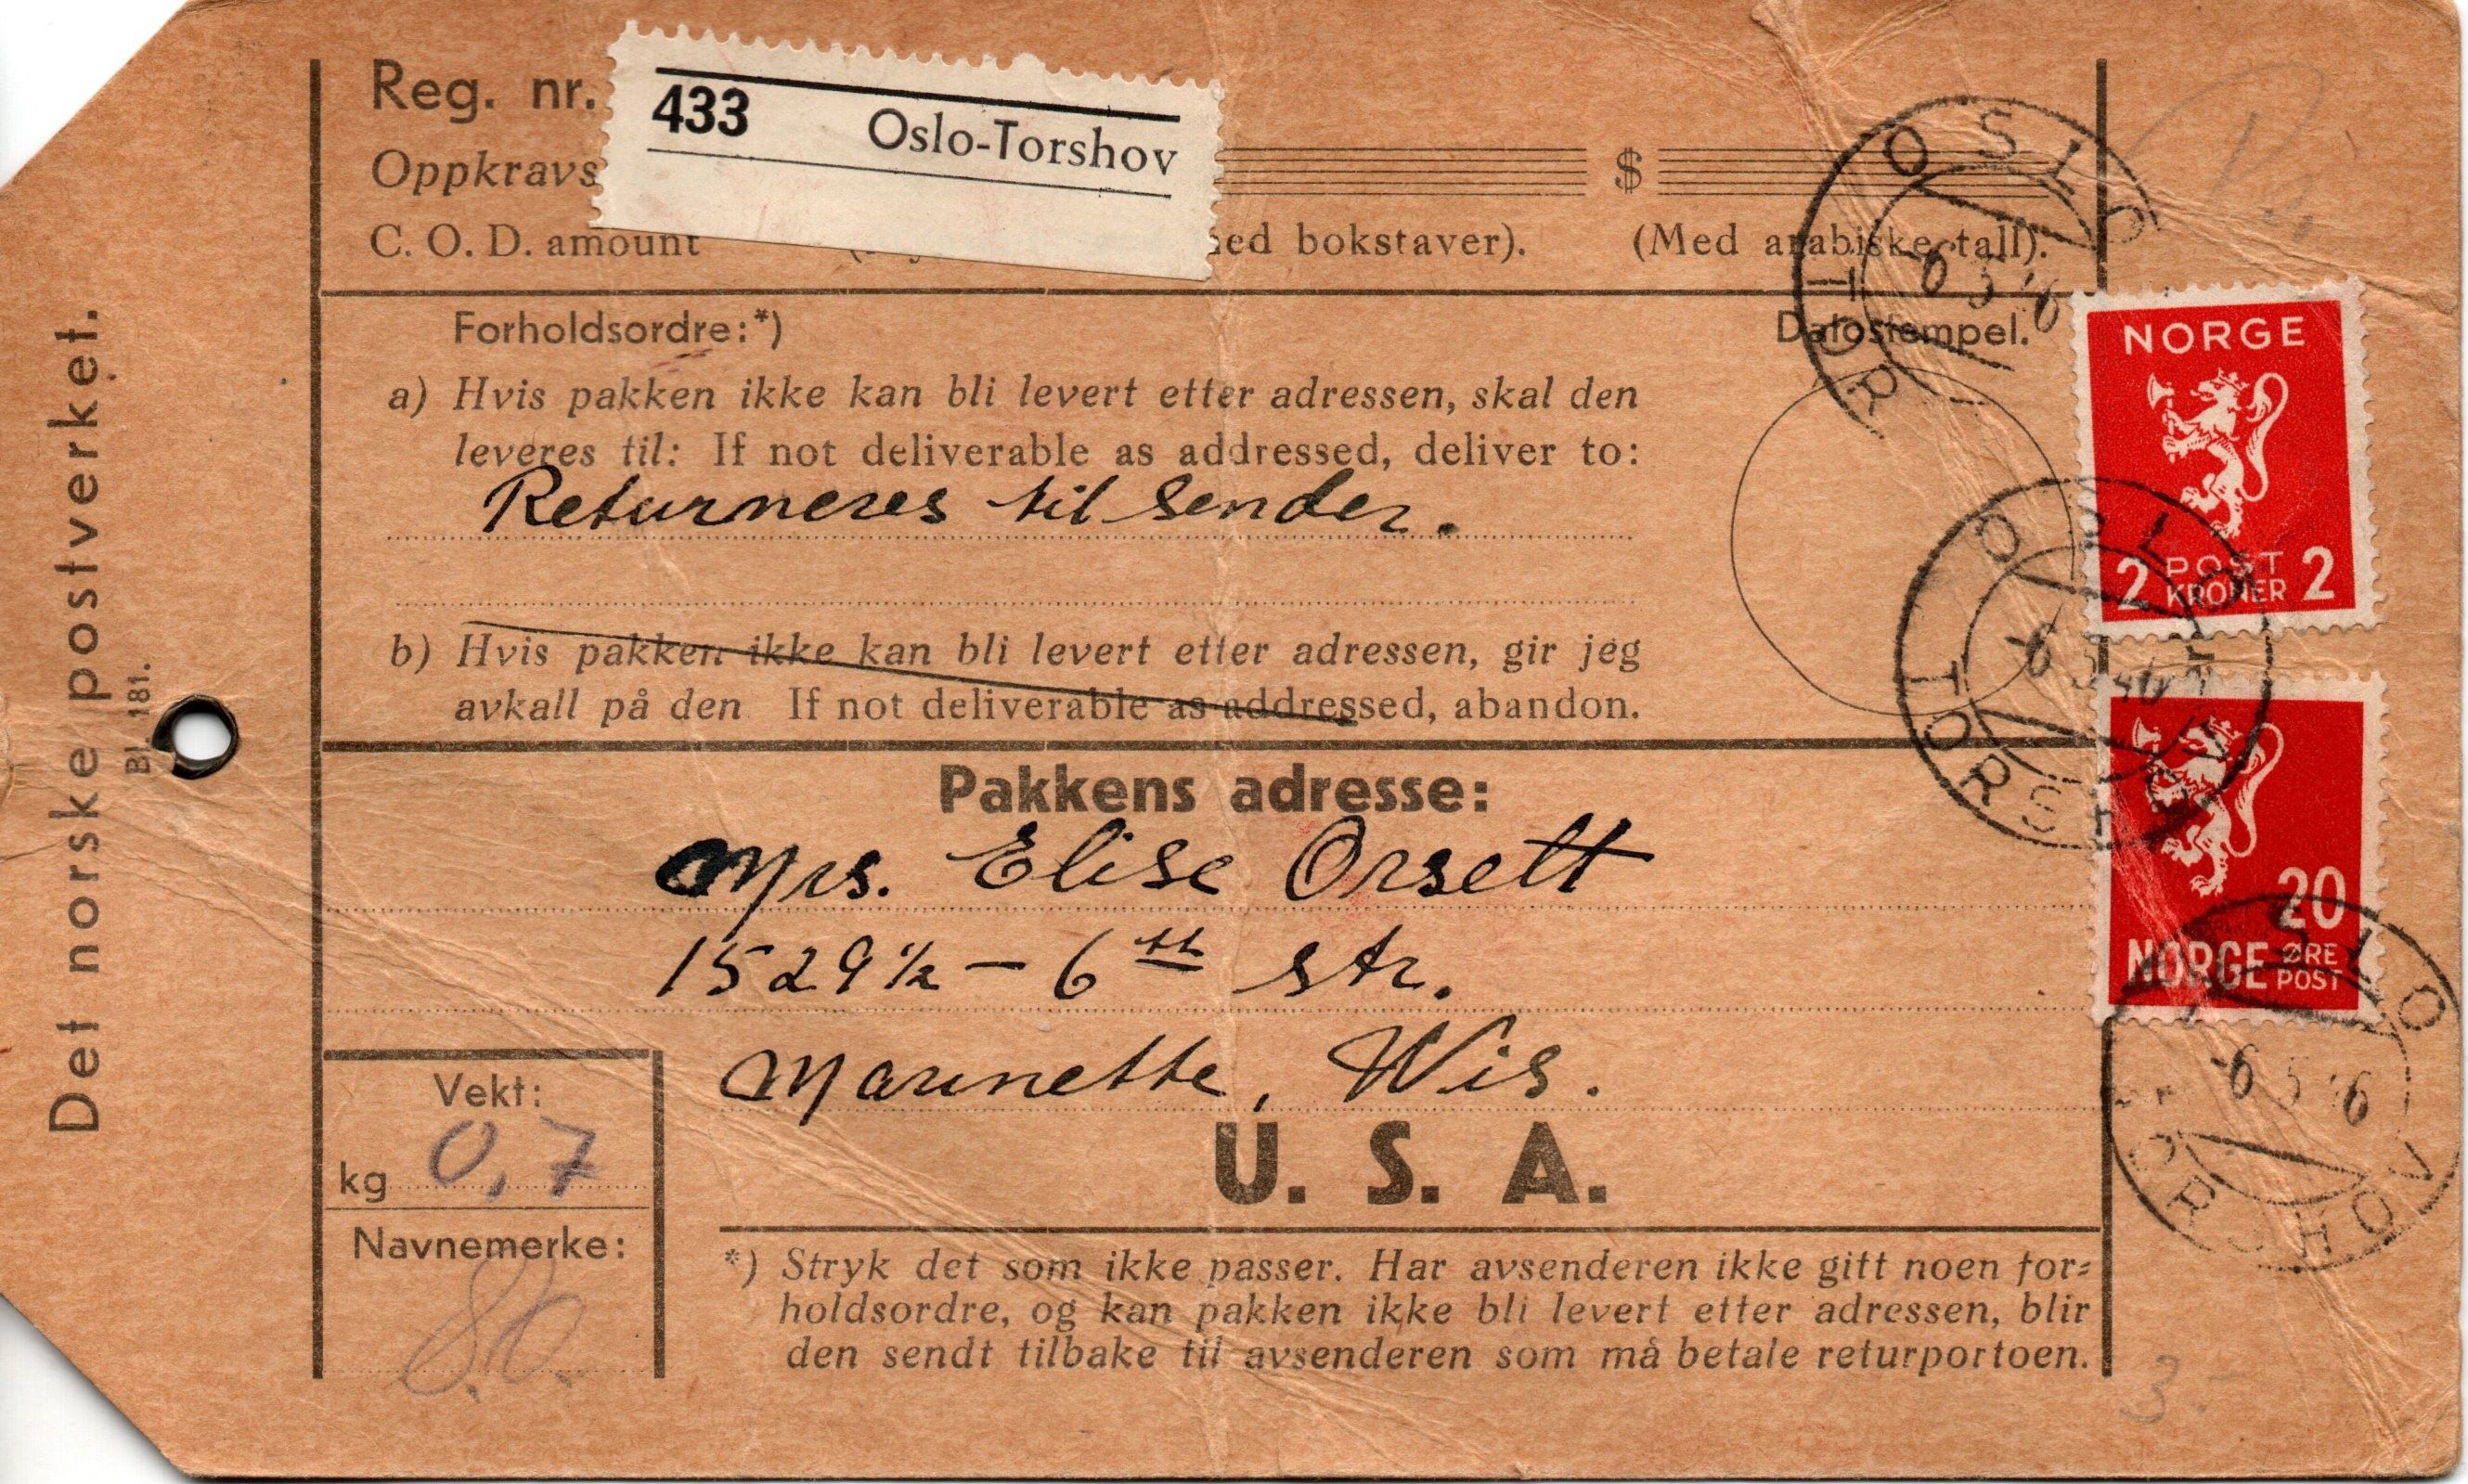 Reg. nr.
433 Oslo-Torshov
Oppkravs $
C. O. D. amount ed bokstaver). (Med arabiske tall).
Forholdsordre:*) Datostempel.
a) Hvis pakken ikke kan bli levert etter adressen, skal den
leveres til: If not deliverable as addressed, deliver to:
Returneres til sender.
b) Hvis pakken ikke kan bli levert etter adressen, gir jeg
avkall på den If not deliverable as addressed, abandon.
Pakkens adresse:
Mrs. Elise Orsett
1529½ – 6th str.
Marinette, Wis.
U. S. A.
Vekt:
kg 0,7
Navnemerke:
*) Stryk det som ikke passer. Har avsenderen ikke gitt noen for=
holdsordre, og kan pakken ikke bli levert etter adressen, blir
den sendt tilbake til avsenderen som må betale returportoen.
Det norske postverket.
Bl. 181.
OSLO TOR
-6 5 46
NORGE
2 POST KRONER 2
OSLO TORSHOV
-6 5 46
20
NORGE ØRE POST
OSLO TORSHOV
-6 5 46
3.-